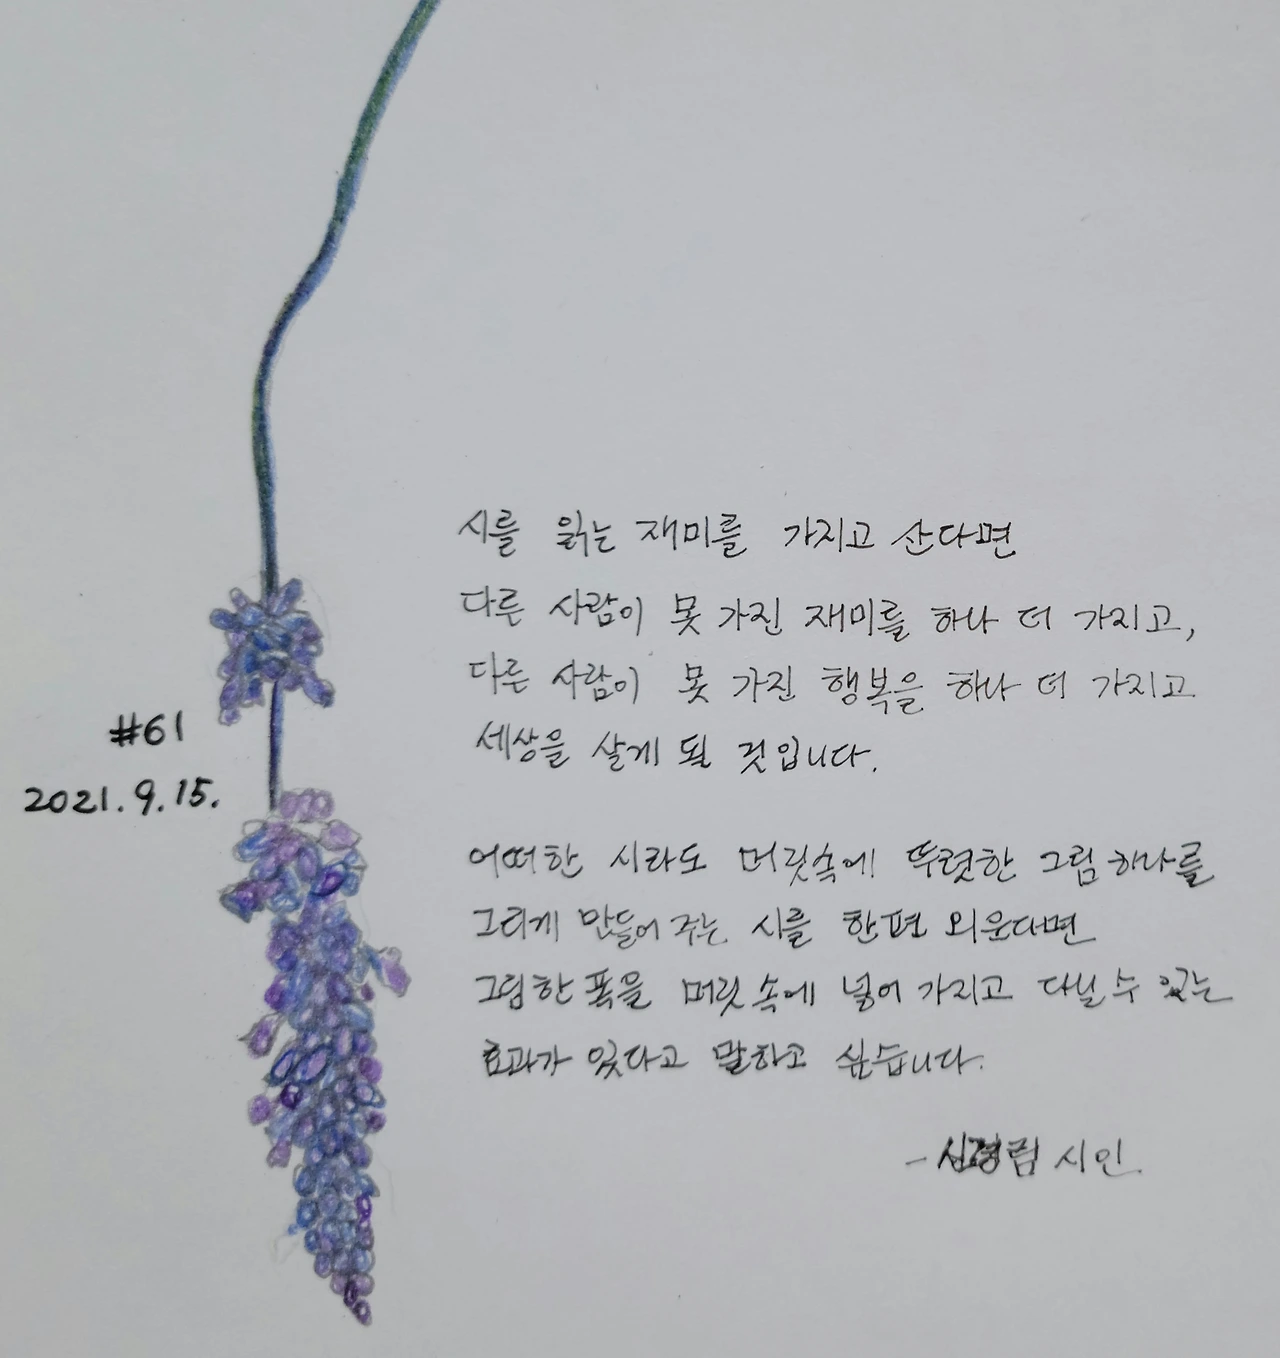 시를 읽는 재미를 가지고 산다면
다른 사람이 못 가진 재미를 하나 더 가지고,
다른 사람이 못 가진 행복을 하나 더 가지고
세상을 살게 될 것입니다.
#61
2021.9.15.
어떠한 시라도 머릿속에 뚜렷한 그림 하나를
그리게 만들어 주는 시를 한편 외운다면
그림 한 폭을 머릿속에 넣어 가지고 다닐 수 있는
효과가 있다고 말하고 싶습니다.
- 신경림 시인